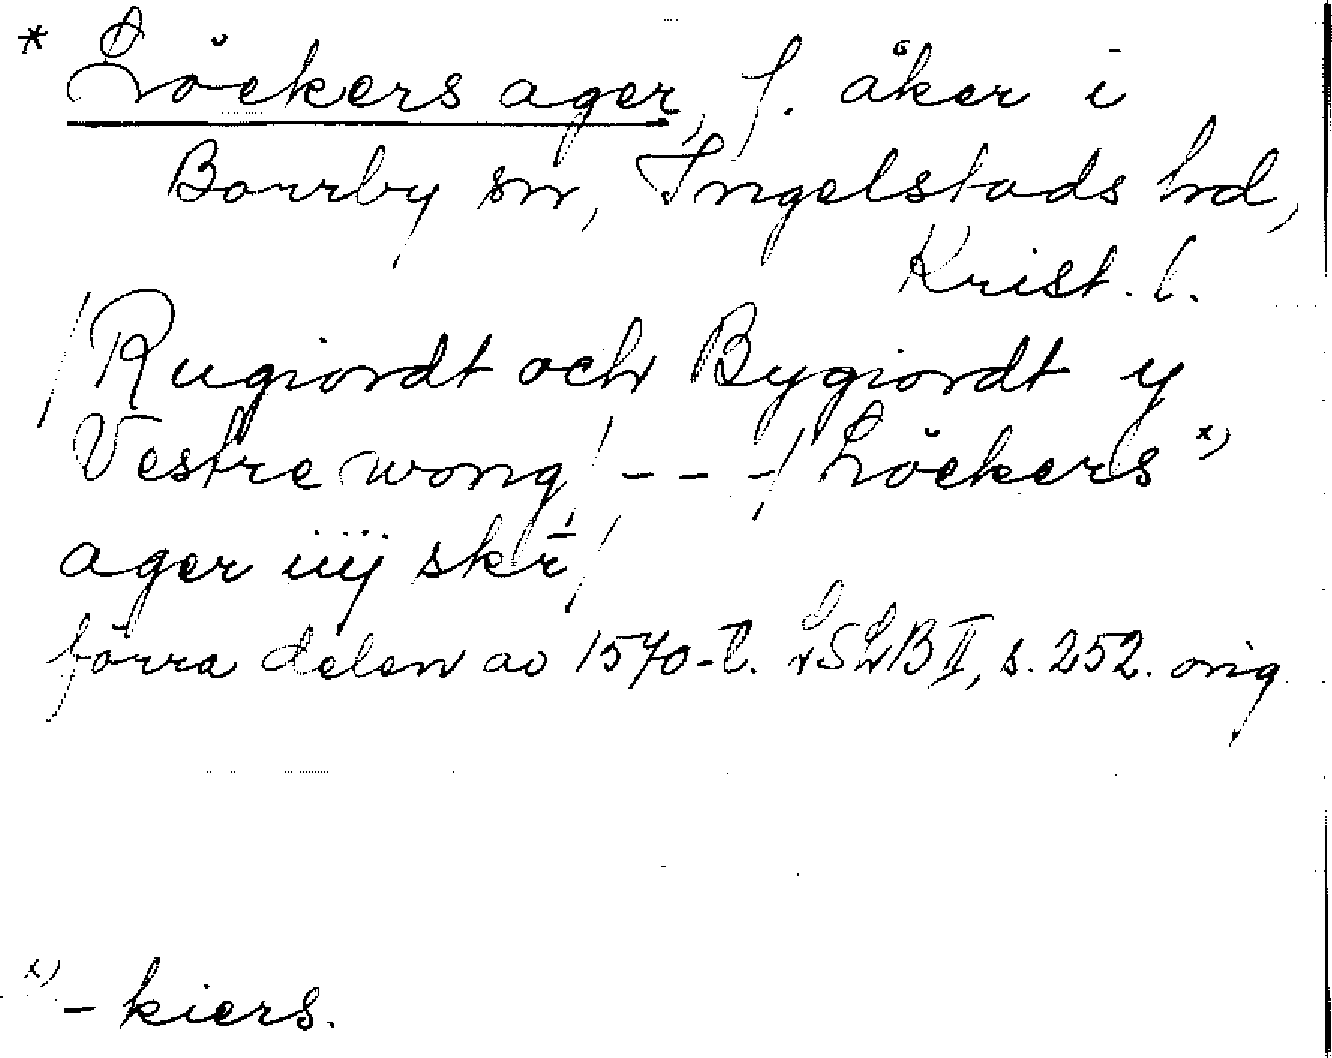 * Löckers ager, f. åker i
Borrby sn, Ingelstads hd,
Krist. l.
/Rugiordt och Bygiordt y
Vestre wong/ - - -/ Löckers x)
ager iiij skr̄/
förra delen av 1570-t. LSLB II, s. 252. orig
x) - kiers.